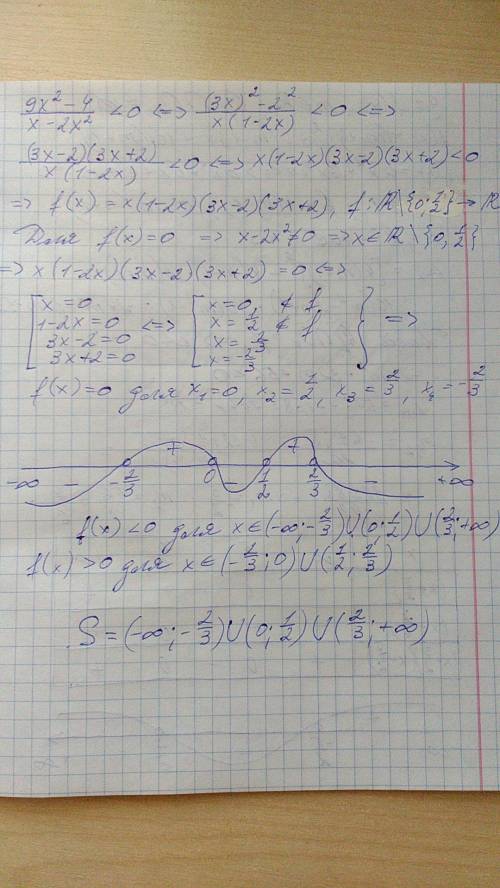 (9x² − 4)/(x − 2x²) < 0 <=> ((3x)² − 2²)/(x(1−2x)) < 0 <=>
((3x−2)(3x+2))/(x(1−2x)) < 0 <=> x(1−2x)(3x−2)(3x+2) < 0
=> f(x) = x(1−2x)(3x−2)(3x+2), f: ℝ\{0; 1/2} → ℝ
Для f(x)=0 => x−2x²≠0 => x∈ℝ\{0, 1/2}
=> x(1−2x)(3x−2)(3x+2) = 0 <=>
[ x = 0 <=> [ x = 0, ∉ f } =>
1−2x = 0 x = 1/2 ∉ f
3x−2 = 0 x = 2/3
3x+2 = 0 x = −2/3
f(x)=0 для x₁=0, x₂=1/2, x₃=2/3, x₄=−2/3
+ +
−∞ − −2/3 0 − 1/2 2/3 − +∞
f(x) < 0 для x∈(−∞; −2/3)∪(0; 1/2)∪(2/3; +∞)
f(x) > 0 для x∈(−2/3; 0)∪(1/2; 2/3)
S = (−∞; −2/3)∪(0; 1/2)∪(2/3; +∞)